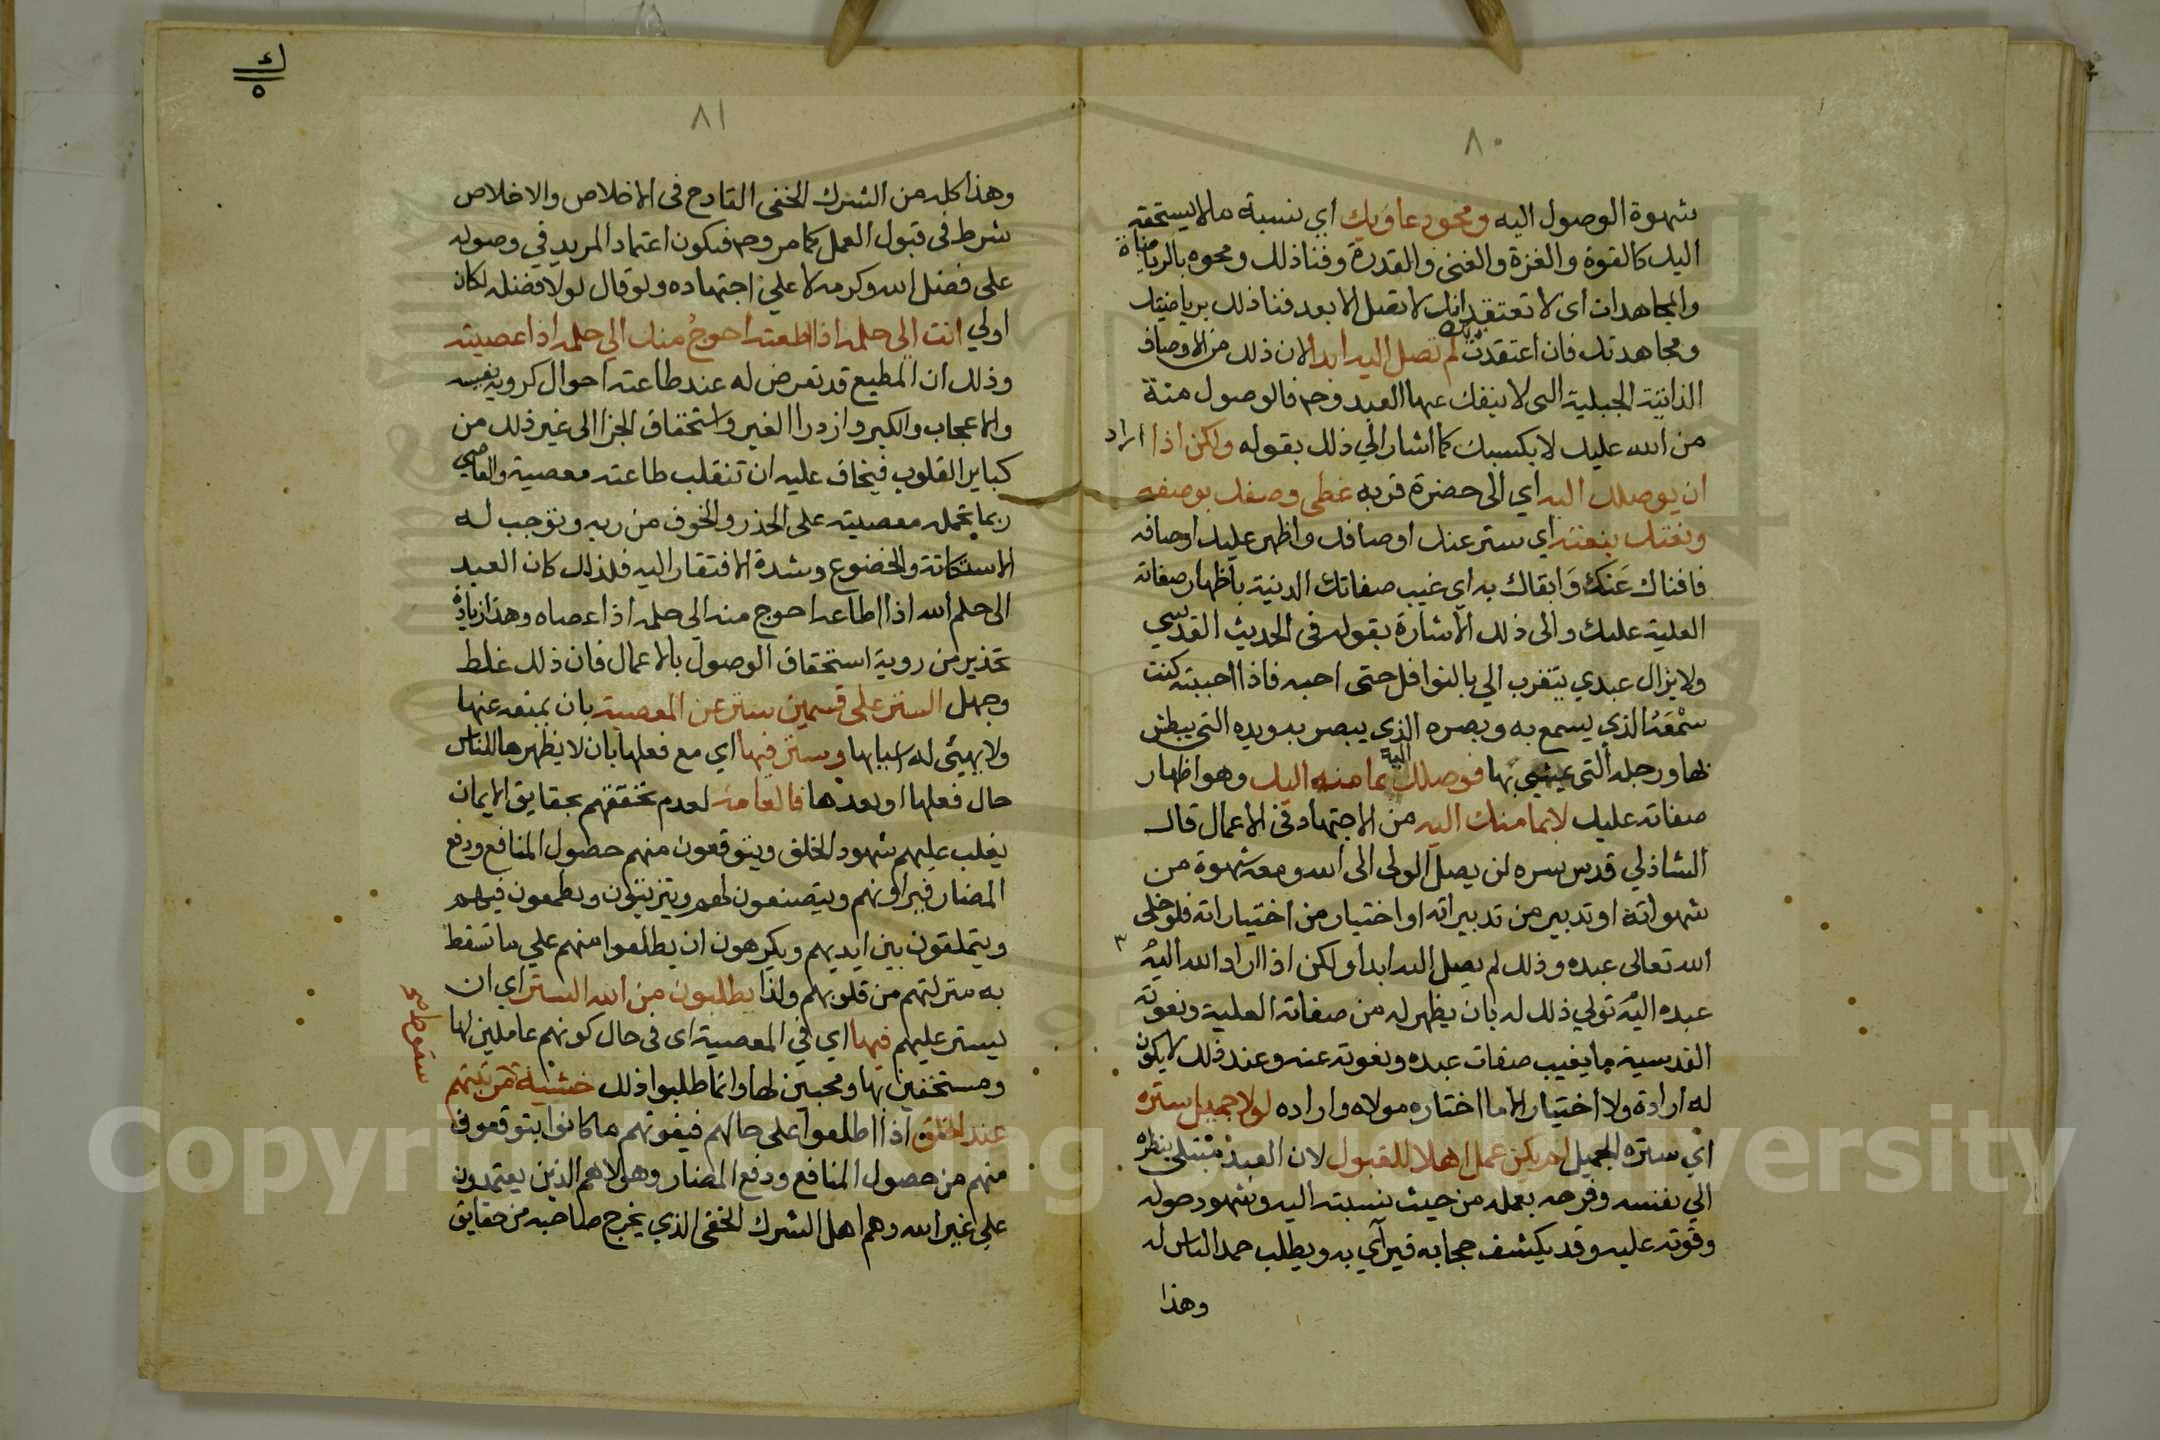 ٨٠
شهوة الوصول اليه ومحود عاويك اي نسبة ما لا يستحقه
اليك كالقوة والعزة والغنى والقدرة وفنا ذلك ومحوه بالرياضة
والمجاهدات اى لا تعتقد انك لا تصل الا بعد فنا ذلك برياضتك
ومجاهدتك فان اعتقدت ذلك لم تصل اليه ابدا لان ذلك من الاوصاف
الذاتية الجبلية التى لا ينفك عنها العبد وح فالوصول منة
من الله عليك لا بكسبك كما اشار الي ذلك بقوله ولكن اذا اراد
ان يوصلك اليه اي الى حضرة قربه غطى وصفك بوصفه
ونعتك بنعته اي ستر عنك اوصافك واظهر عليك اوصافه
فافناك عَنكَ وَابقاك به اي غيب صفاتك الدنية باظهار صفاته
العلية عليك والى ذلك الاشارة بقوله فى الحديث القدسي
ولا يزال عبدي يتقرب الي بالنوافل حتى احبه فاذا احببته كنت
سمْعَهُ الذي يسمع به وبصره الذي يبصر به ويده التى يبطش
بها ورجله التى يمشي بها فوصلك اليه بما منه اليك وهو اظهار
صفاته عليك لا بما منك اليه من الاجتهاد فى الاعمال قال
الشاذلي قدس سره لن يصل الولى الى الله ومعه شهوة من
شهواته او تدبير من تدبيراته او اختيار من اختياراته فلو خلى
الله تعالى عبده وذلك لم يصل اليه ابدا ولكن اذا اراد الله اليه ٣
عبده اليه تولي ذلك له بان يظهر له من صفاته العلية ونعوته
القدسية ما يغيب صفات عبده ونعوته عنه وعند ذلك لا يكون
له ارادة ولا اختيار الا ما اختاره مولاه واراده لولا جميل ستره
اي ستره الجميل لم يكن عمل اهلا للقبول لان العبد مبتلي بنظره
الي نفسه وفرحه بعمله من حيث نسبته اليه وشهود حوله
وقوته عليه وقد يكشف حجابه فيرآي به ويطلب حمد الناس له
وهذا
ك
٥
٨١
وهذا كله من الشرك الخفى القادح فى الاخلاص والاخلاص
شرط فى قبول العمل كما مر وح فيكون اعتماد المريد في وصوله
على فضل الله وكرمه لا علي اجتهاده ولو قال لولا فضله لكان
اولي انت الي حلمه اذا اطعته احوجُ منك الي حلمه اذا عصيته
وذلك ان المطيع قد تعرض له عند طاعته احوال كروية نفسه
والاعجاب والكبر وازدرا الغير واستحقاق الجزا الى غير ذلك من
كباير القلوب فيخاف عليه ان تنقلب طاعته معصية والعاصي
ربما تحمله معصيته على الحذر والخوف من ربه وتوجب له
الاستكانة والخضوع وشدة الافتقار اليه فلذلك كان العبد
الى حلم الله اذا اطاعه احوج منه الي حلمه اذا عصاه وهذا زيادة
تحذير من روية استحقاق الوصول بالاعمال فان ذلك غلط
وجهل الستر على قسمين ستر عن المعصية بان يمنعه عنها
ولا يهيئى له اسبابها وستر فيها اي مع فعلها بان لا يظهرها للناس
حال فعلها او بعدها فالعامة لعدم تحققهم بحقايق الايمان
يغلب عليهم شهود الخلق ويتوقعون منهم حصول المنافع ودفع
المضار فيراونهم ويتصنعون لهم ويتزينون ويطمعون فيهم
ويتملقون بين ايديهم ويكرهون ان يطلعوا منهم علي ما تسقط
به منزلتهم من قلوبهم ولذا يطلبون من الله الستر اي ان
يستر عليهم فيها اي في المعصية اى فى حال كونهم عاملين لها
ومستخفين بها ومحبين لها وانما طلبوا ذلك خشية مرتبتهم
سقوط صح
عند الخلق اذا اطلعوا على حالهم فيفوتهم ما كانوا يتوقعون
منهم من حصول المنافع ودفع المضار وهولا هم الذين يعتمدون
علي غير الله وهم اهل الشرك الخفى الذي يخرج صاحبه من حقايق
Copyright © King Saud University